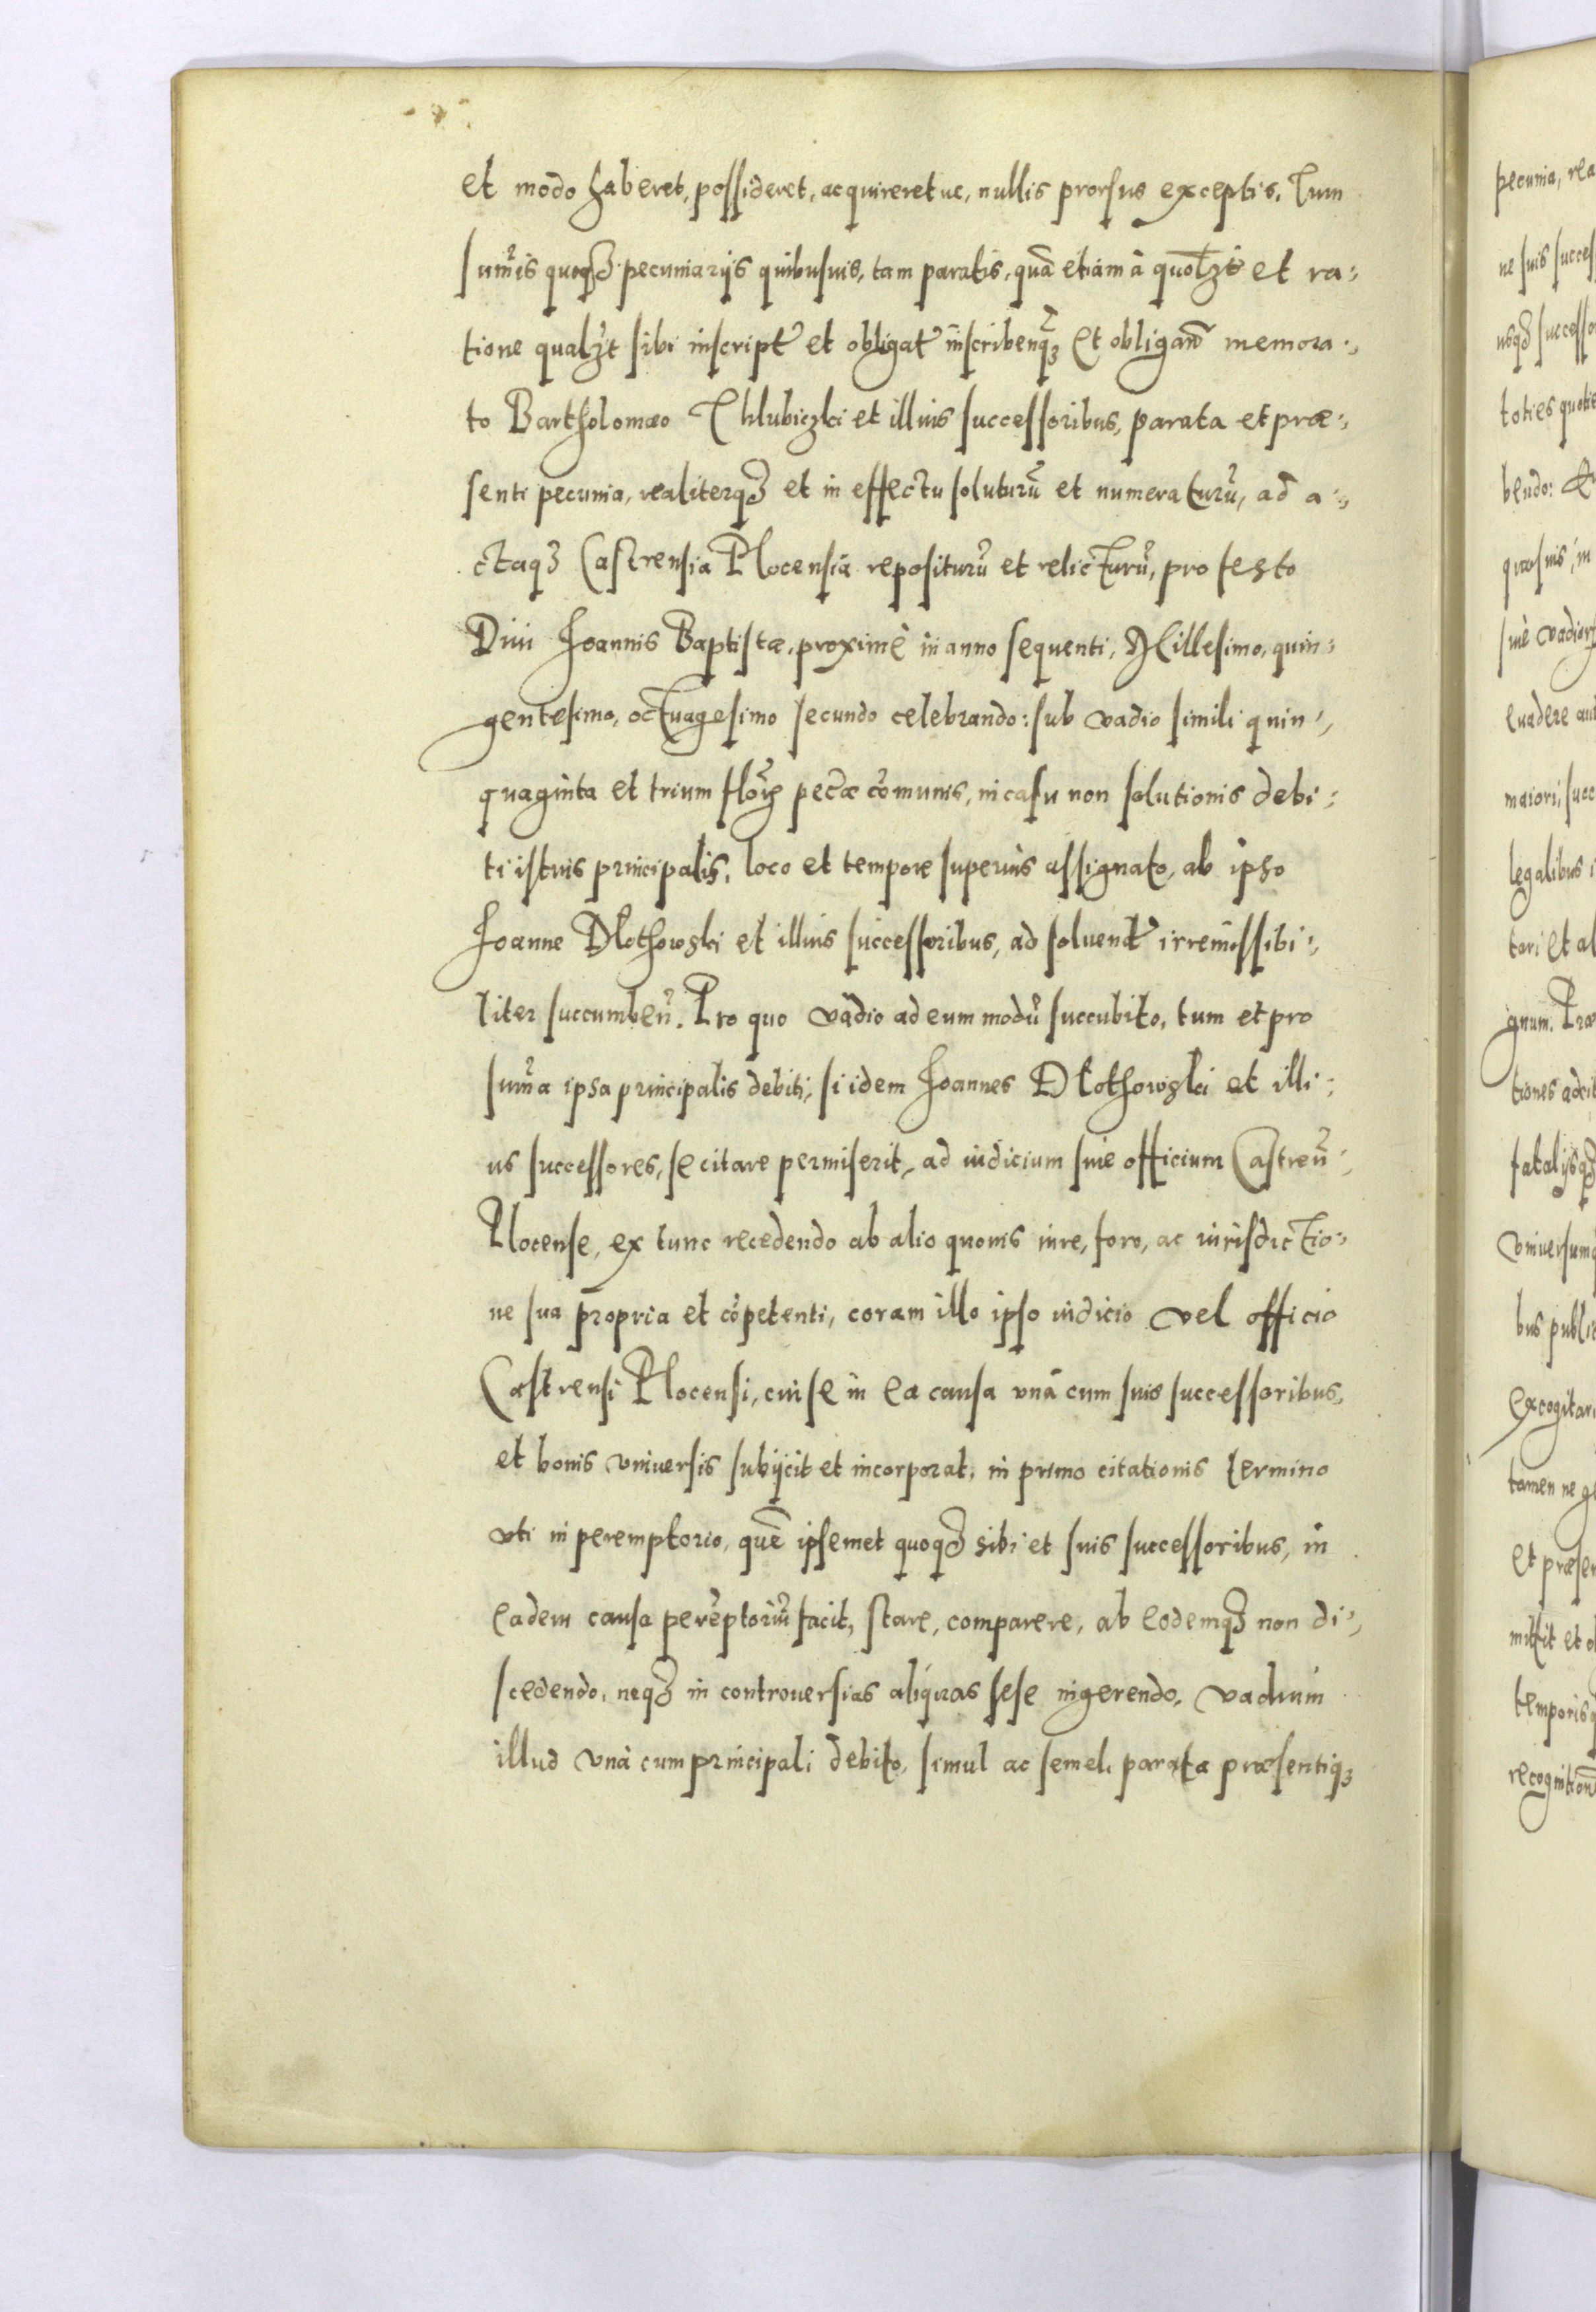 et modo haberet, possideret, acquireretue, nullis prorsus exceptis. Tum
sum̃is quoqȝ pecuniarijs quibusuis, tam paratis, quã etiam à quolȝt et ra:
tione qualȝt sibi inscript̃ et obligat̃ inscribenqȝ Et obligañ memora:
to Bartholomæo Chlubiczki et illius successoribus, parata et præ:
senti pecunia, realiterqȝ et in effectu soluturũ et numeraturũ, ad a:
ctaqȝ Castrensia Plocensia repositurũ et relicturũ, pro festo
Diui Joannis Baptistæ, proximè in anno sequenti, Millesimo, quin:
gentesimo, octuagesimo secundo celebrando: sub vadio simili quin:
quaginta et trium floɍ pec̃æ cõmunis, in casu non solutionis debi:
ti istius principalis, loco et tempore superius assignato, ab ipso
Joanne Dlothowski et illius successoribus, ad soluend̃ irremissibi:
liter succumbeñ. Pro quo vadio ad eum modũ succubito, tum et pro
sum̃a ipsa principalis debiti, si idem Joannes Dlothowski et illi:
us successores, se citare permiserit, ad iudicium siue officium Castreñ:
Plocense, ex tunc recedendo ab alio quouis iure, foro, ac iurisdictio:
ne sua propria et cõpetenti, coram illo ipso iudicio vel officio
Castrensi Plocensi, cui se in ea causa vnà cum suis successoribus,
et bonis vniuersis subijcit et incorporat, in primo citationis termino
vti in peremptorio, quẽ ipsemet quoqȝ sibi et suis successoribus, in
eadem causa perẽptoriũ facit, stare, comparere, ab eodemqȝ non di:
scedendo, neqȝ in controuersias aliquas sese ingerendo, vadium
illud vnà cum principali debito, simul ac semel, parata præsentiqȝ
pecunia, rea
ne suis succes
usqȝ successo
toties quotie
bendo:
quosuis, in
euadere aut
maiori, succ
legalibus i
tari et al
gnum. Præ
tiones
fatalijsqȝ
vniuersum
bus publi
excogitari
tamen ne ge
et præsen
mittit et o
temporisq
recognition